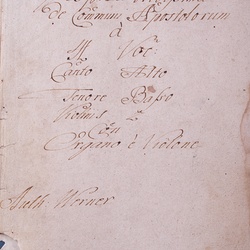 de Communi Apostolorum
à
4 Voc:
Canto Alto
Tenore Basso
Violinis
Con
Organo è Violone
Auth: Werner